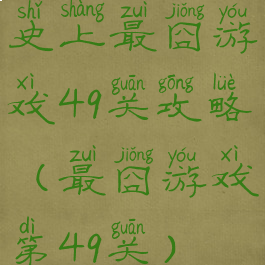 shǐ shàng zuì jiǒng yóu
史上最囧游
xì guān gōng lüè
戏49关攻略
zuì jiǒng yóu xì
（最囧游戏
dì guān
第49关）